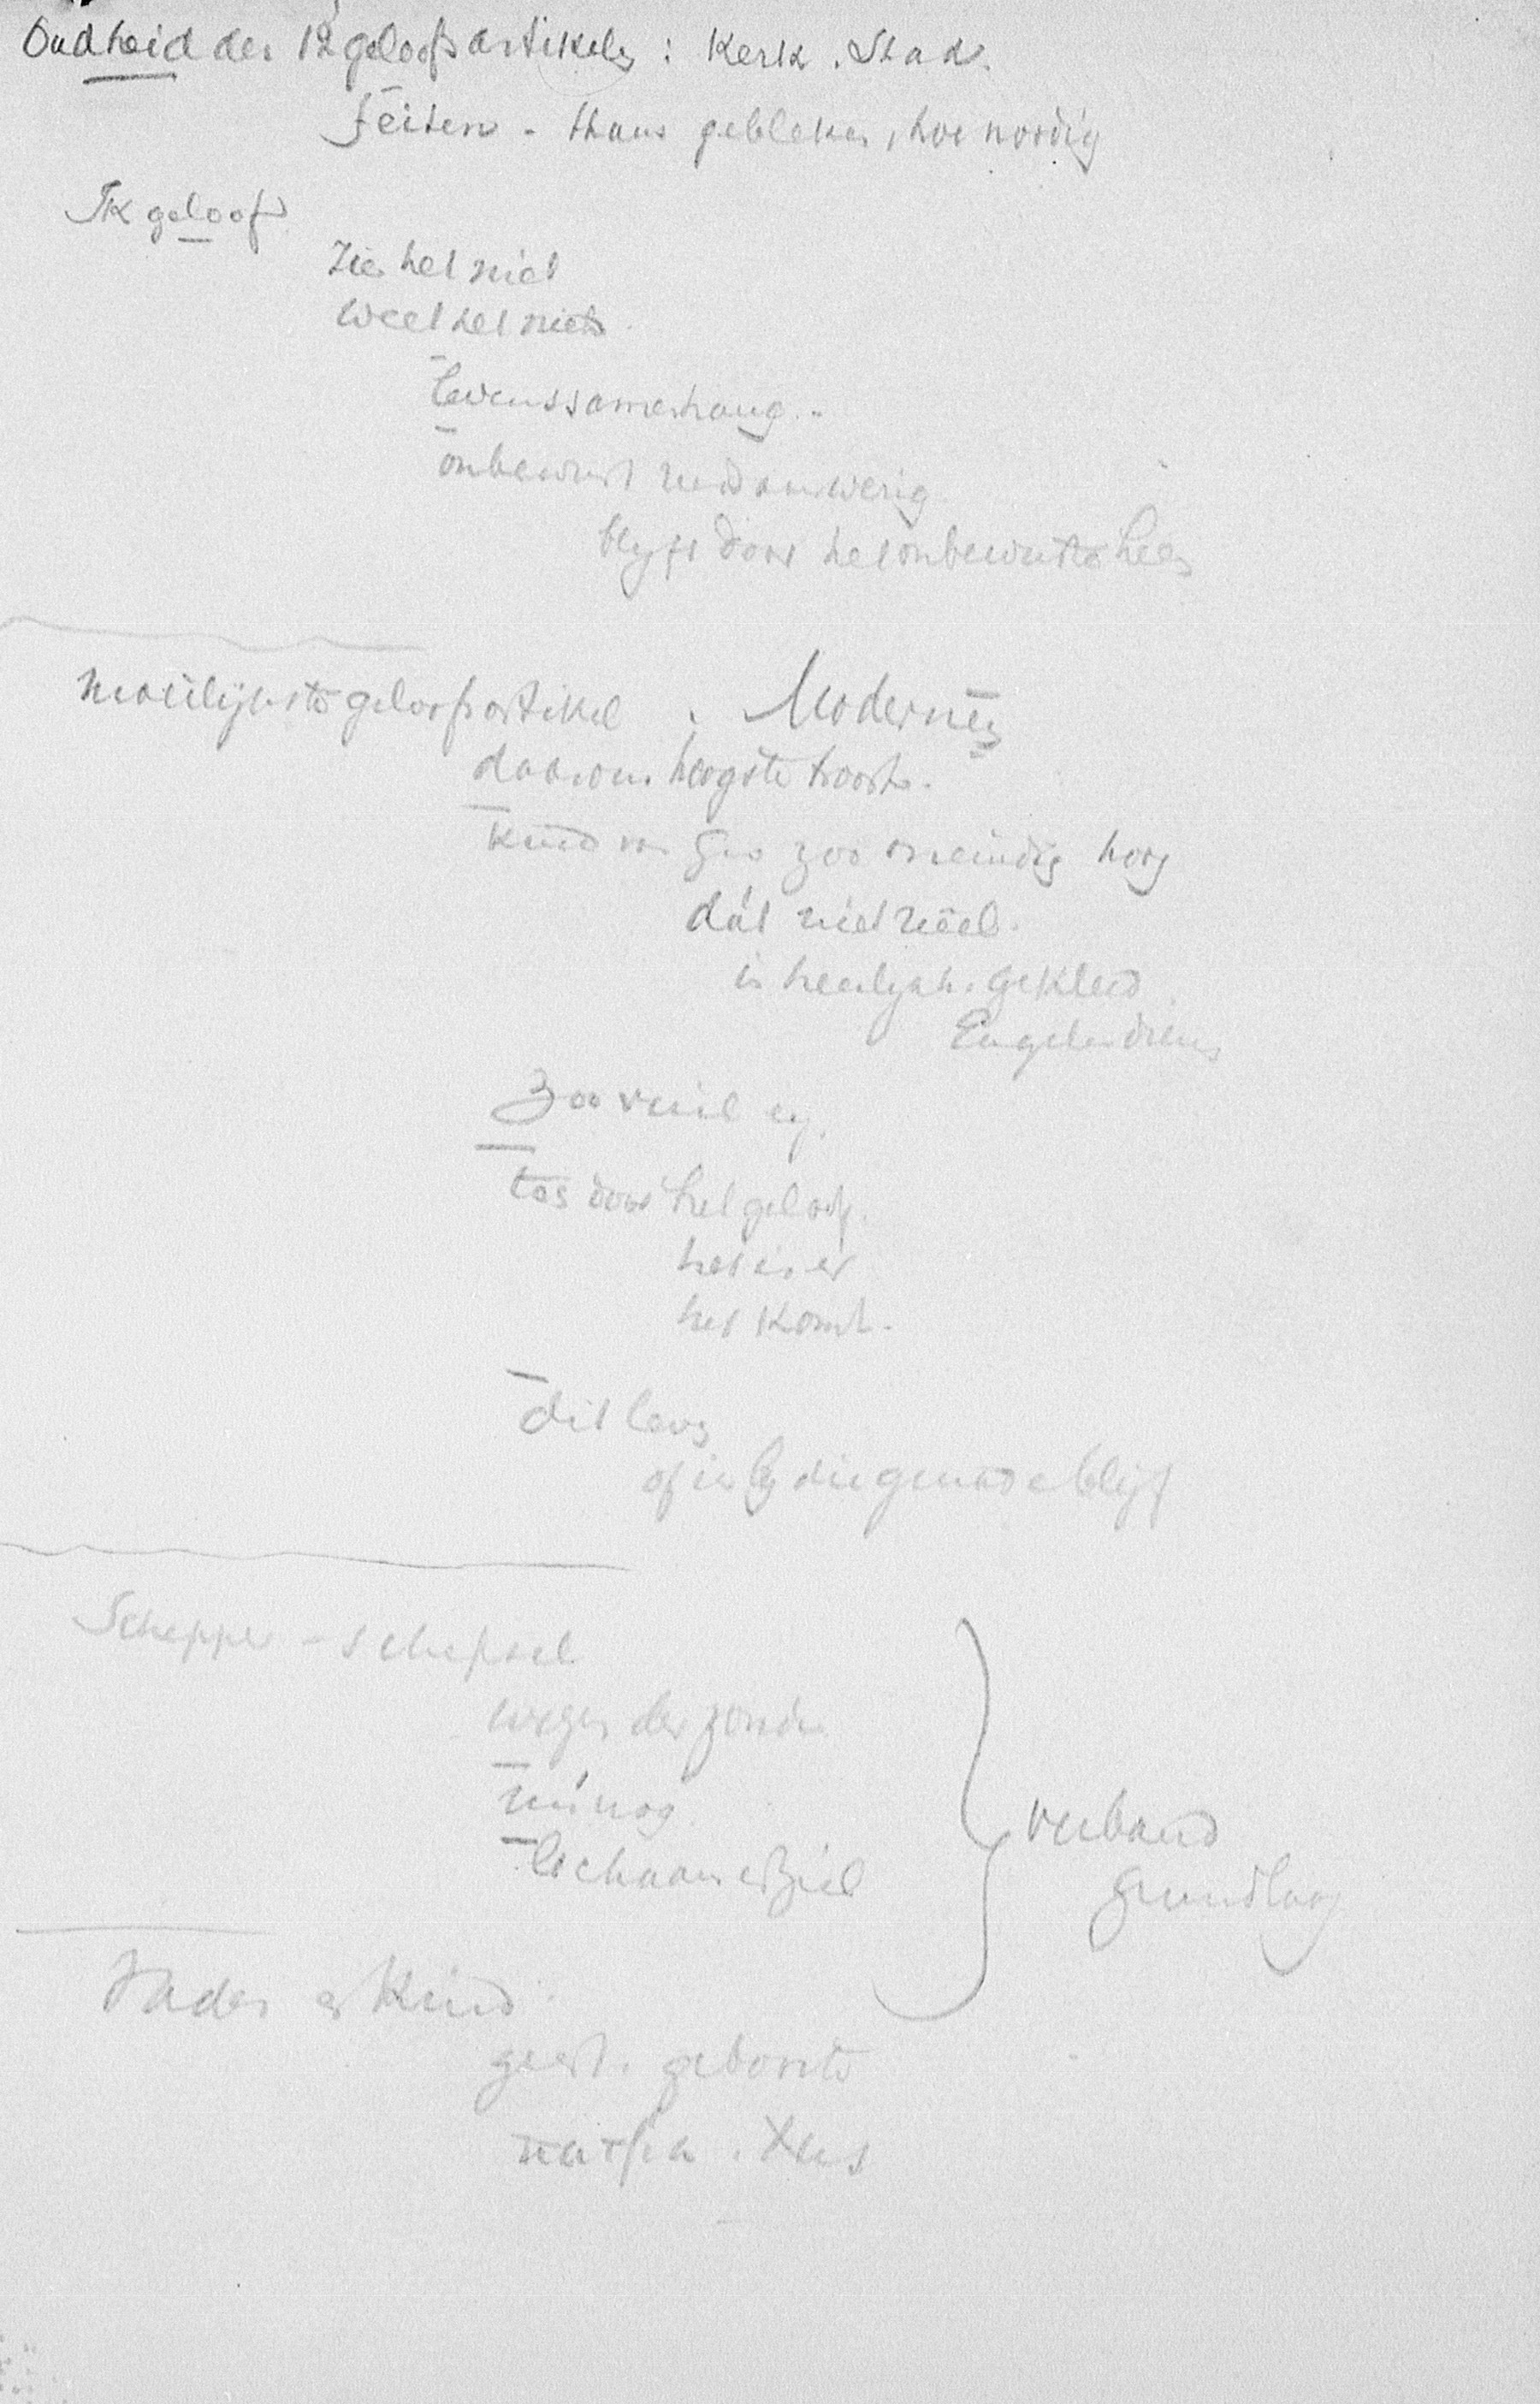 Oudheid der 12 geloofsartikelen : Kerk. Stad.
feiten - thans gebleken, hoe noodig
Ik geloof
zie het niet
weet het niet
levenssamenhang.
onbewust
blijft door het onbewuste heen
moeilijkste geloofsartikel . Modernen
daarom hoogste troost.
Kind van God zoo oneindig hoog
dát niet
in heerlijkh. gekleed
Engelen dienen
Zoo
door het geloof.
het is er
het komt.
dit leven
of in die genade blijf
Schepper - schepsel
wegens der zonde
nú nog
lichaam en ziel
verband
grondlag
Vader en Kind
geest. geboorte